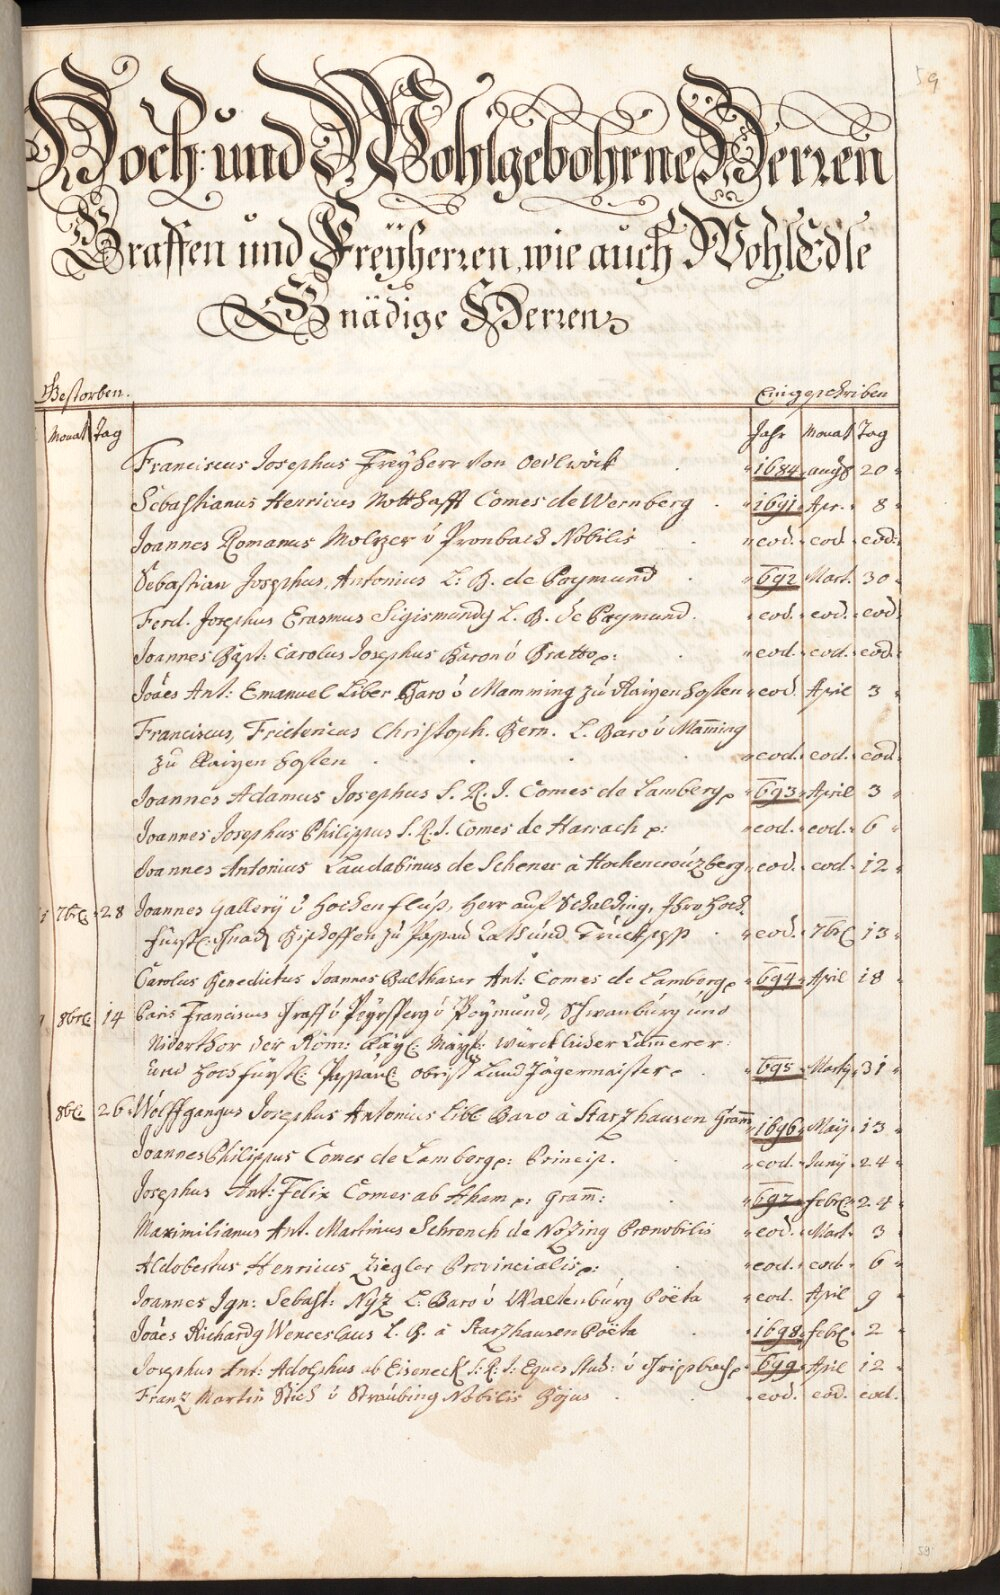 59
Hoch: und Wohlgebohrne Herren
Graffen und Freÿherren, wie auch WohlEdle
Gnädige Herren
Gestorben. Eingeschriben
Monat Tag Jahr Monat Tag
Franciscus Josephus Freyherr von 1684 augs 20
Sebastianus Henricus Notthafft Comes de Wernberg 1691 Apr. 8
Joannes Romanus Molzer v Pronbach Nobilis eod. eod. eod.
Sebastian Josephus Antonius L: B. de Poymund 692 Mart. 30
Ferd. Josephus Erasmus Sigismundg L. B. de Paymund. eod. eod. eod
Joannes Bapt: Carolus Josephus Baron v Pratto p: eod. eod. eod.
Joães Ant: Emanuel Liber Baro v Mamming zu eod. April 3
Franciscus, Fridericus Christoph. Bern. L. Baro v Mam̄ing
zu eod. eod. eod.
Joannes Adamus Josephus S. R. I. Comes de Lamberg p 693 April 3
Joannes Josephus Philippus S. R. I. Comes de Harrach p: eod. eod. 6
Joannes Antonius Laudabinus de Schener à Hochencreuzberg eod. eod. 12
7br 28 Joannes Gallerÿ v Hochenfluß, Herr auf Schalding, Ihro Hoch
fürstl. Gnad Bischoffen zu Passau Rath und Truckhses eod. 7br 13
Carolus Benedictus Joannes Balthasar Ant: Comes de Lamberg p 694 April 18
8br 14 Paris Franciscus Graff v v Poÿmund, Schwanburg und
Niderthor der Röm: Kaÿl: Maÿt: würcklicher Cam̄erer
und Hochfürstl: Passaul: obrist Land Jägermaister p. 695 Martij 31
8br 26 Wolffgangus Josephus Antonius Libe Baro à Starzhausen Gram̄ 1696 Maij 13
Joannes Philippus Comes de Lamberg p: Princip. eod. Junij 24
Josephus Ant: Felix Comes ab Aham p: Gram̄: 697 febr 24
Maximilianus Ant. Martinus Schrench de Nozing Prænobilis eod. Mart. 3
Aldobertus Henricus Ziegler Provincialis p: eod. eod. 6
Joannes Ign: Sebast: Nÿz L: Baro v Wartenburg Poëta eod. April 9
Joães Richardg Wenceslaus L. B. à Starzhausen Poëta 1698 febr. 2
Josephus Ant: Adolphus ab Eiseneck S: R: I: Eques Stud: v 699 April 12
Franz Martin Stich v Straubing Nobilis Bojus eod. eod. eod.
59